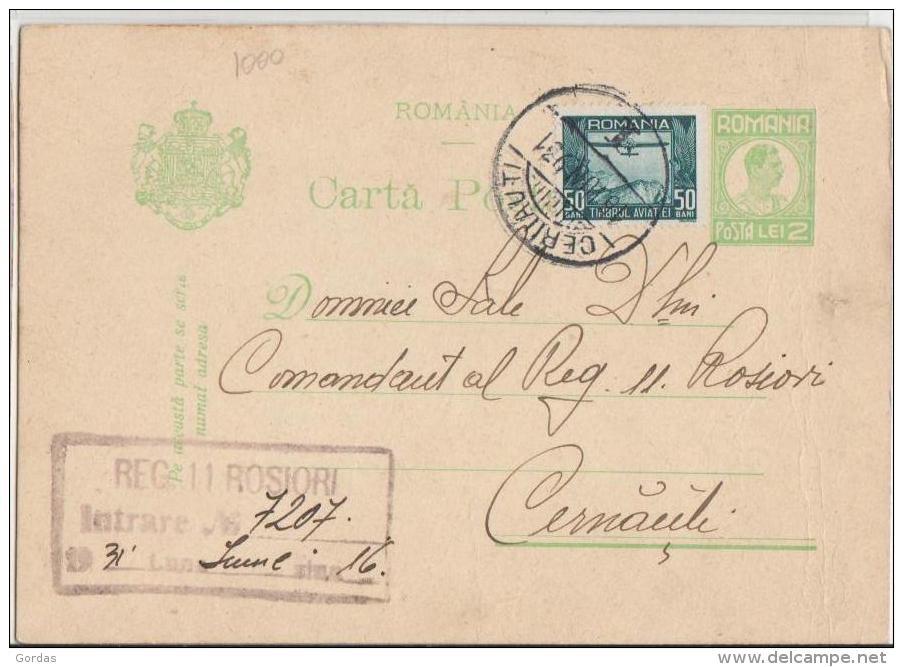 1000
ROMÂNIA
Cartă Po
ROMANIA
50 50
BANI TIMBRUL AVIAȚIEI BANI
ROMANIA
POSTA LEI 2
CERNAUTI
Pe această parte se scrie
numai adresa
Domniei Sale D-lui
Comandant al Reg. 11. Rosiori
Cernăuți
REG. 11 ROSIORI
Intrare № 7207.
19 31 Luna Iunie ziua 16.
Gordas
www.delcampe.net